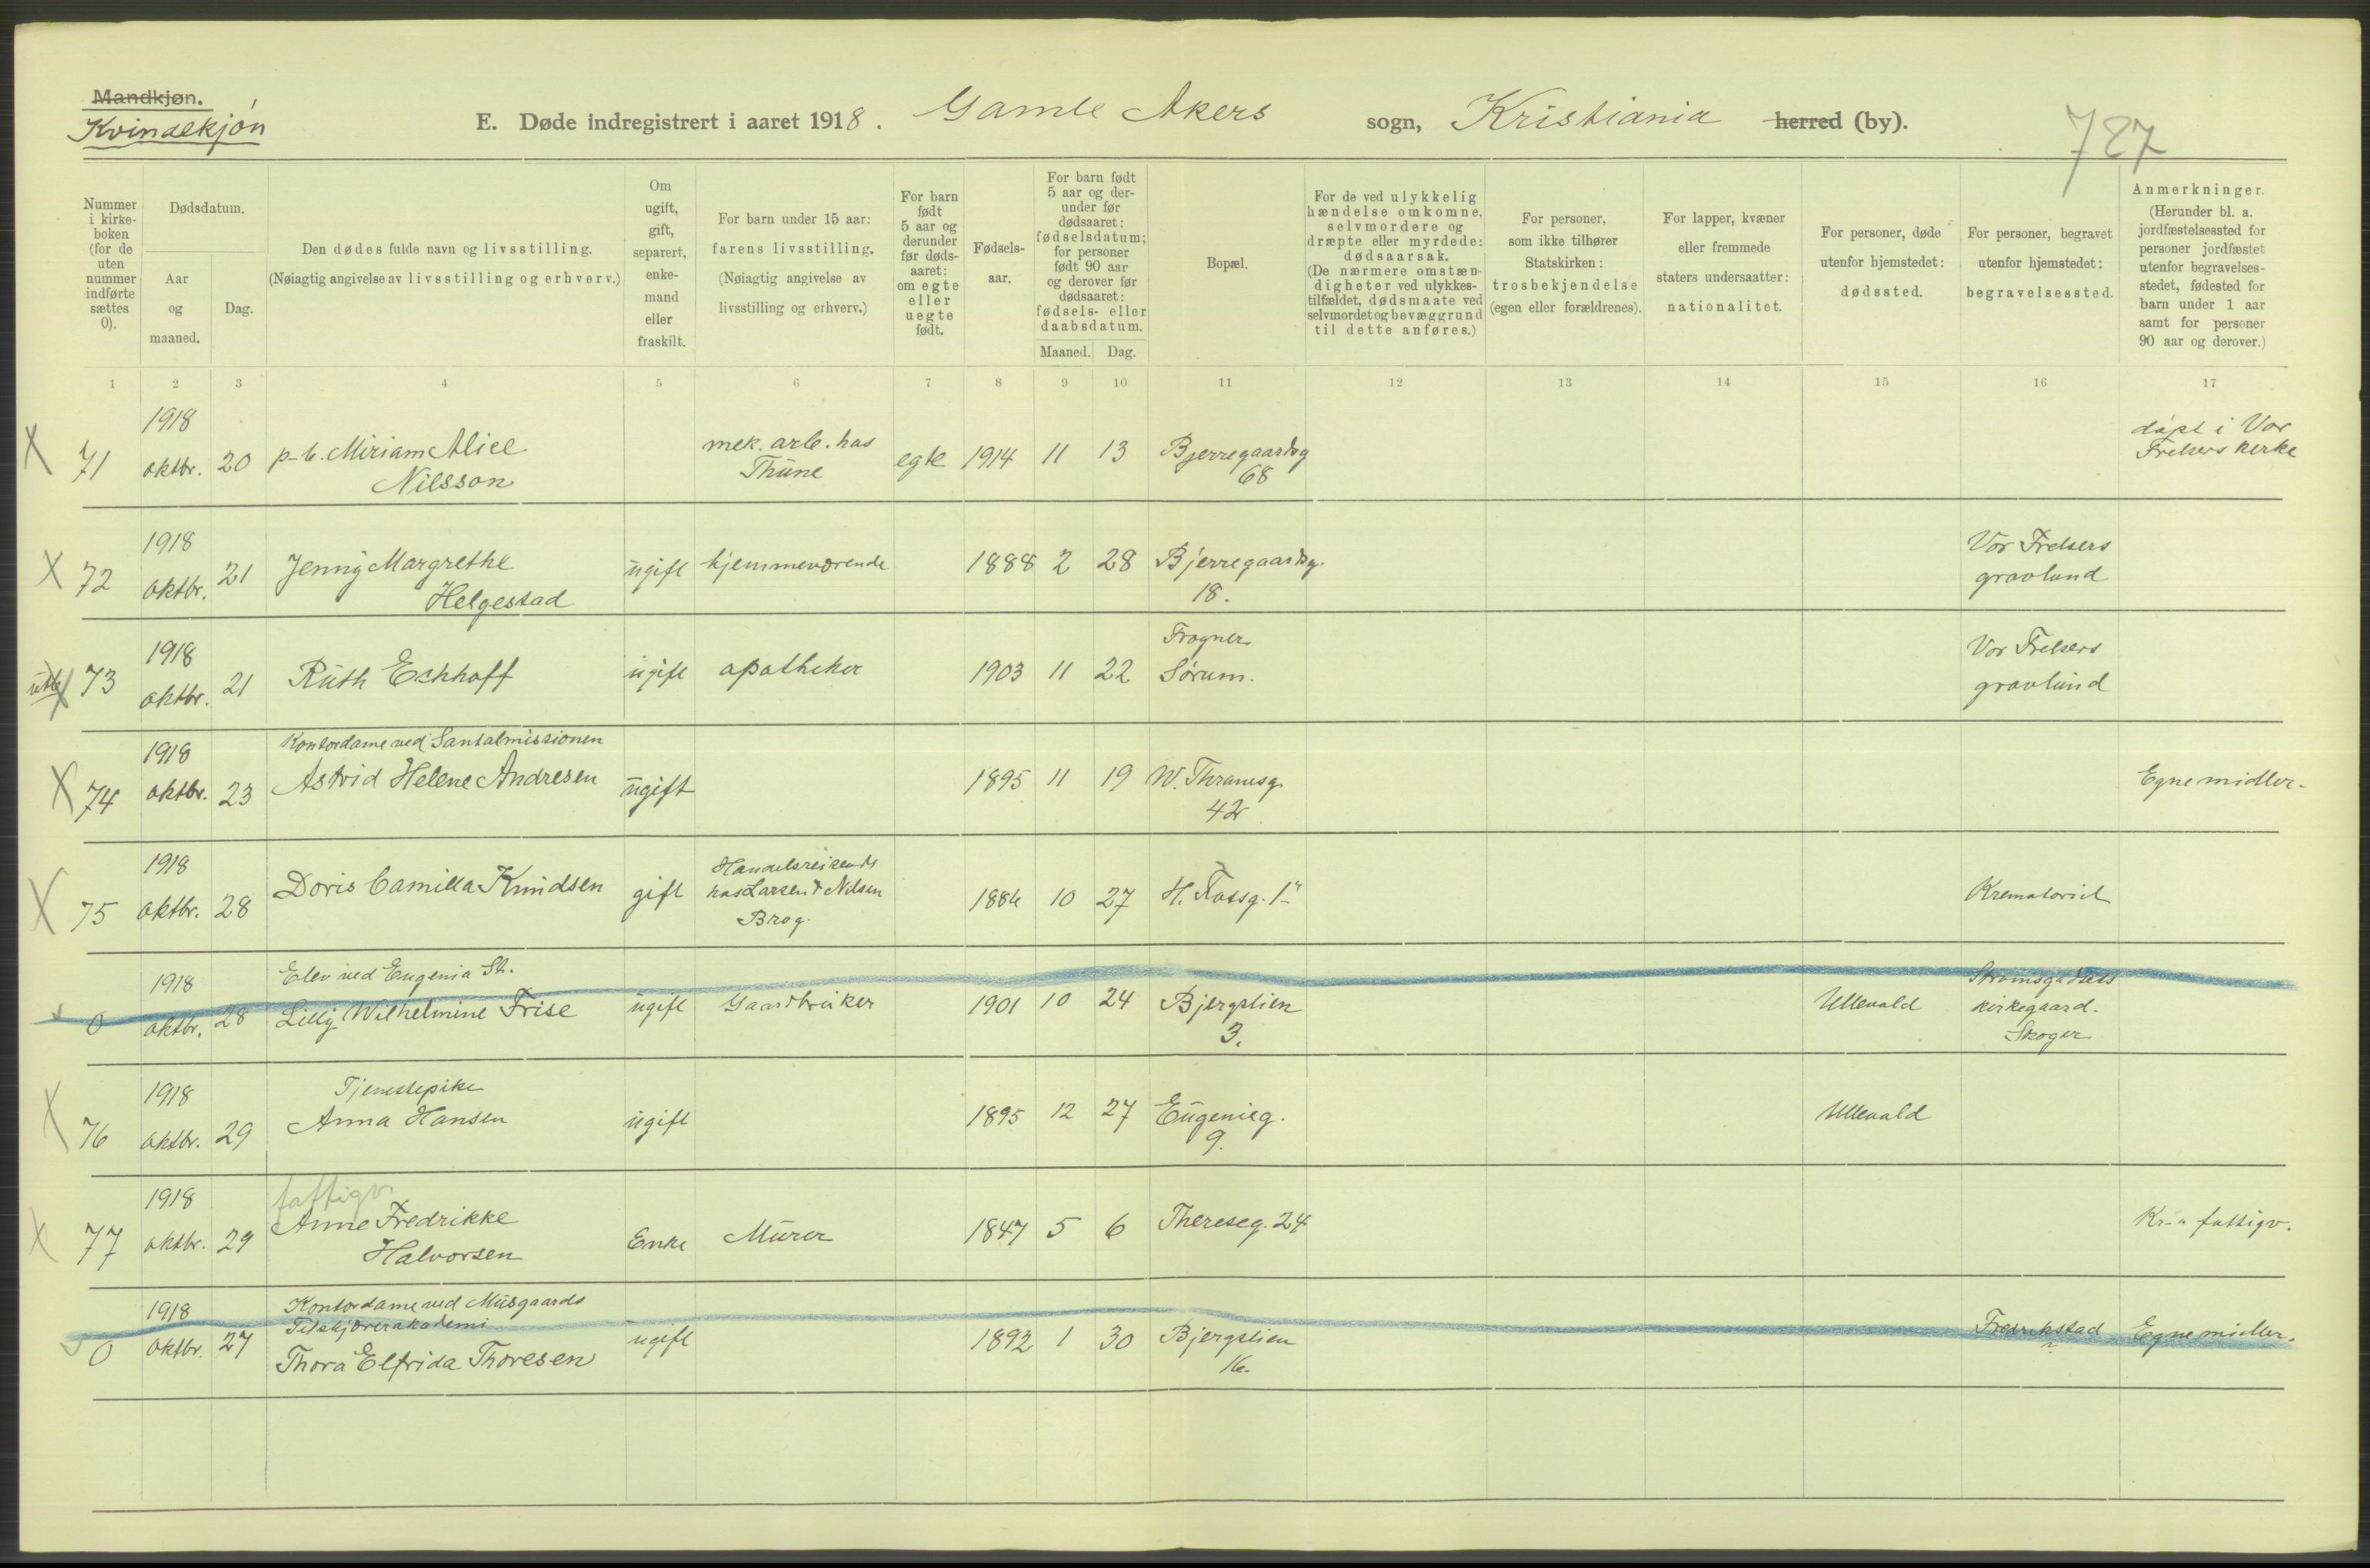 Mandkjøn.
Kvindekjøn
E. Døde indregistrert i aaret 1918. Gamle Akers sogn, Kristiania herred (by).
727
Nummer i kirkeboken (for de uten nummer indførte sættes 0).
Dødsdatum.
Aar og maaned.
Dag.
Den dødes fulde navn og livsstilling.
(Nøiagtig angivelse av livsstilling og erhverv.)
Om ugift, gift, separert, enkemand eller fraskilt.
For barn under 15 aar: farens livsstilling.
(Nøiagtig angivelse av livsstilling og erhverv.)
For barn født 5 aar og derunder før dødsaaret: om egte eller uegte født.
Fødselsaar.
For barn født 5 aar og derunder før dødsaaret: fødselsdatum; for personer født 90 aar og derover før dødsaaret: fødsels- eller daabsdatum.
Maaned. Dag.
Bopæl.
For de ved ulykkelig hændelse omkomne, selvmordere og dræpte eller myrdede: dødsaarsak.
(De nærmere omstændigheter ved ulykkestilfældet, dødsmaate ved selvmordet og bevæggrund til dette anføres.)
For personer, som ikke tilhører Statskirken: trosbekjendelse (egen eller forældrenes).
For lapper, kvæner eller fremmede staters undersaatter: nationalitet.
For personer, døde utenfor hjemstedet: dødssted.
For personer, begravet utenfor hjemstedet: begravelsessted.
Anmerkninger.
(Herunder bl. a. jordfæstelsessted for personer jordfæstet utenfor begravelsesstedet, fødested for barn under 1 aar samt for personer 90 aar og derover.)
1 2 3 4 5 6 7 8 9 10 11 12 13 14 15 16 17
X 71 1918 oktbr. 20 p.b. Miriam Alice Nilsson mek. arb. hos Thune egte 1914 11 13 Bjerregaardsg 68 døpt i Vor Frelsers kirke
X 72 1918 oktbr. 21 Jenny Margrethe Helgestad ugift hjemmeværende 1888 2 28 Bjerregaardsg. 18. Vor Frelsers gravlund
X 73 1918 oktbr. 21 Ruth Eckhoff ugift apotheker 1903 11 22 Frogner Sørum. Vor Frelsers gravlund
X 74 1918 oktbr. 23 Kontordame ved Santalmissionen Astrid Helene Andresen ugift 1895 11 19 W. Thranesg. 42 Egne midler.
X 75 1918 oktbr. 28 Doris Camilla Knudsen gift Handelsreisende hos Larsen & Nilsen Brog. 1886 10 27 Krematoriet
0 1918 oktbr. 28 Elev ved Eugenia St. Lilly Wilhelmine Frise ugift Gaardbruker 1901 10 24 Bjergslien 3. Ullevald Strømsgodsets kirkegaard. Skoger
X 76 1918 oktbr. 29 Tjenestepike Anna Hansen ugift 1895 12 27 Eugenieg. 9. Ullevald
X 77 1918 oktbr. 29 fattigv. Anne Fredrikke Halvorsen Enke Murer 1847 5 6 Thereseg. 24 Kr-a fattigv.
0 1918 oktbr. 27 Kontordame ved Musgaards Tilskjærerakademi Thora Elfrida Thoresen ugift 1892 1 30 Bjergslien 16. Fredrikstad Egne midler.